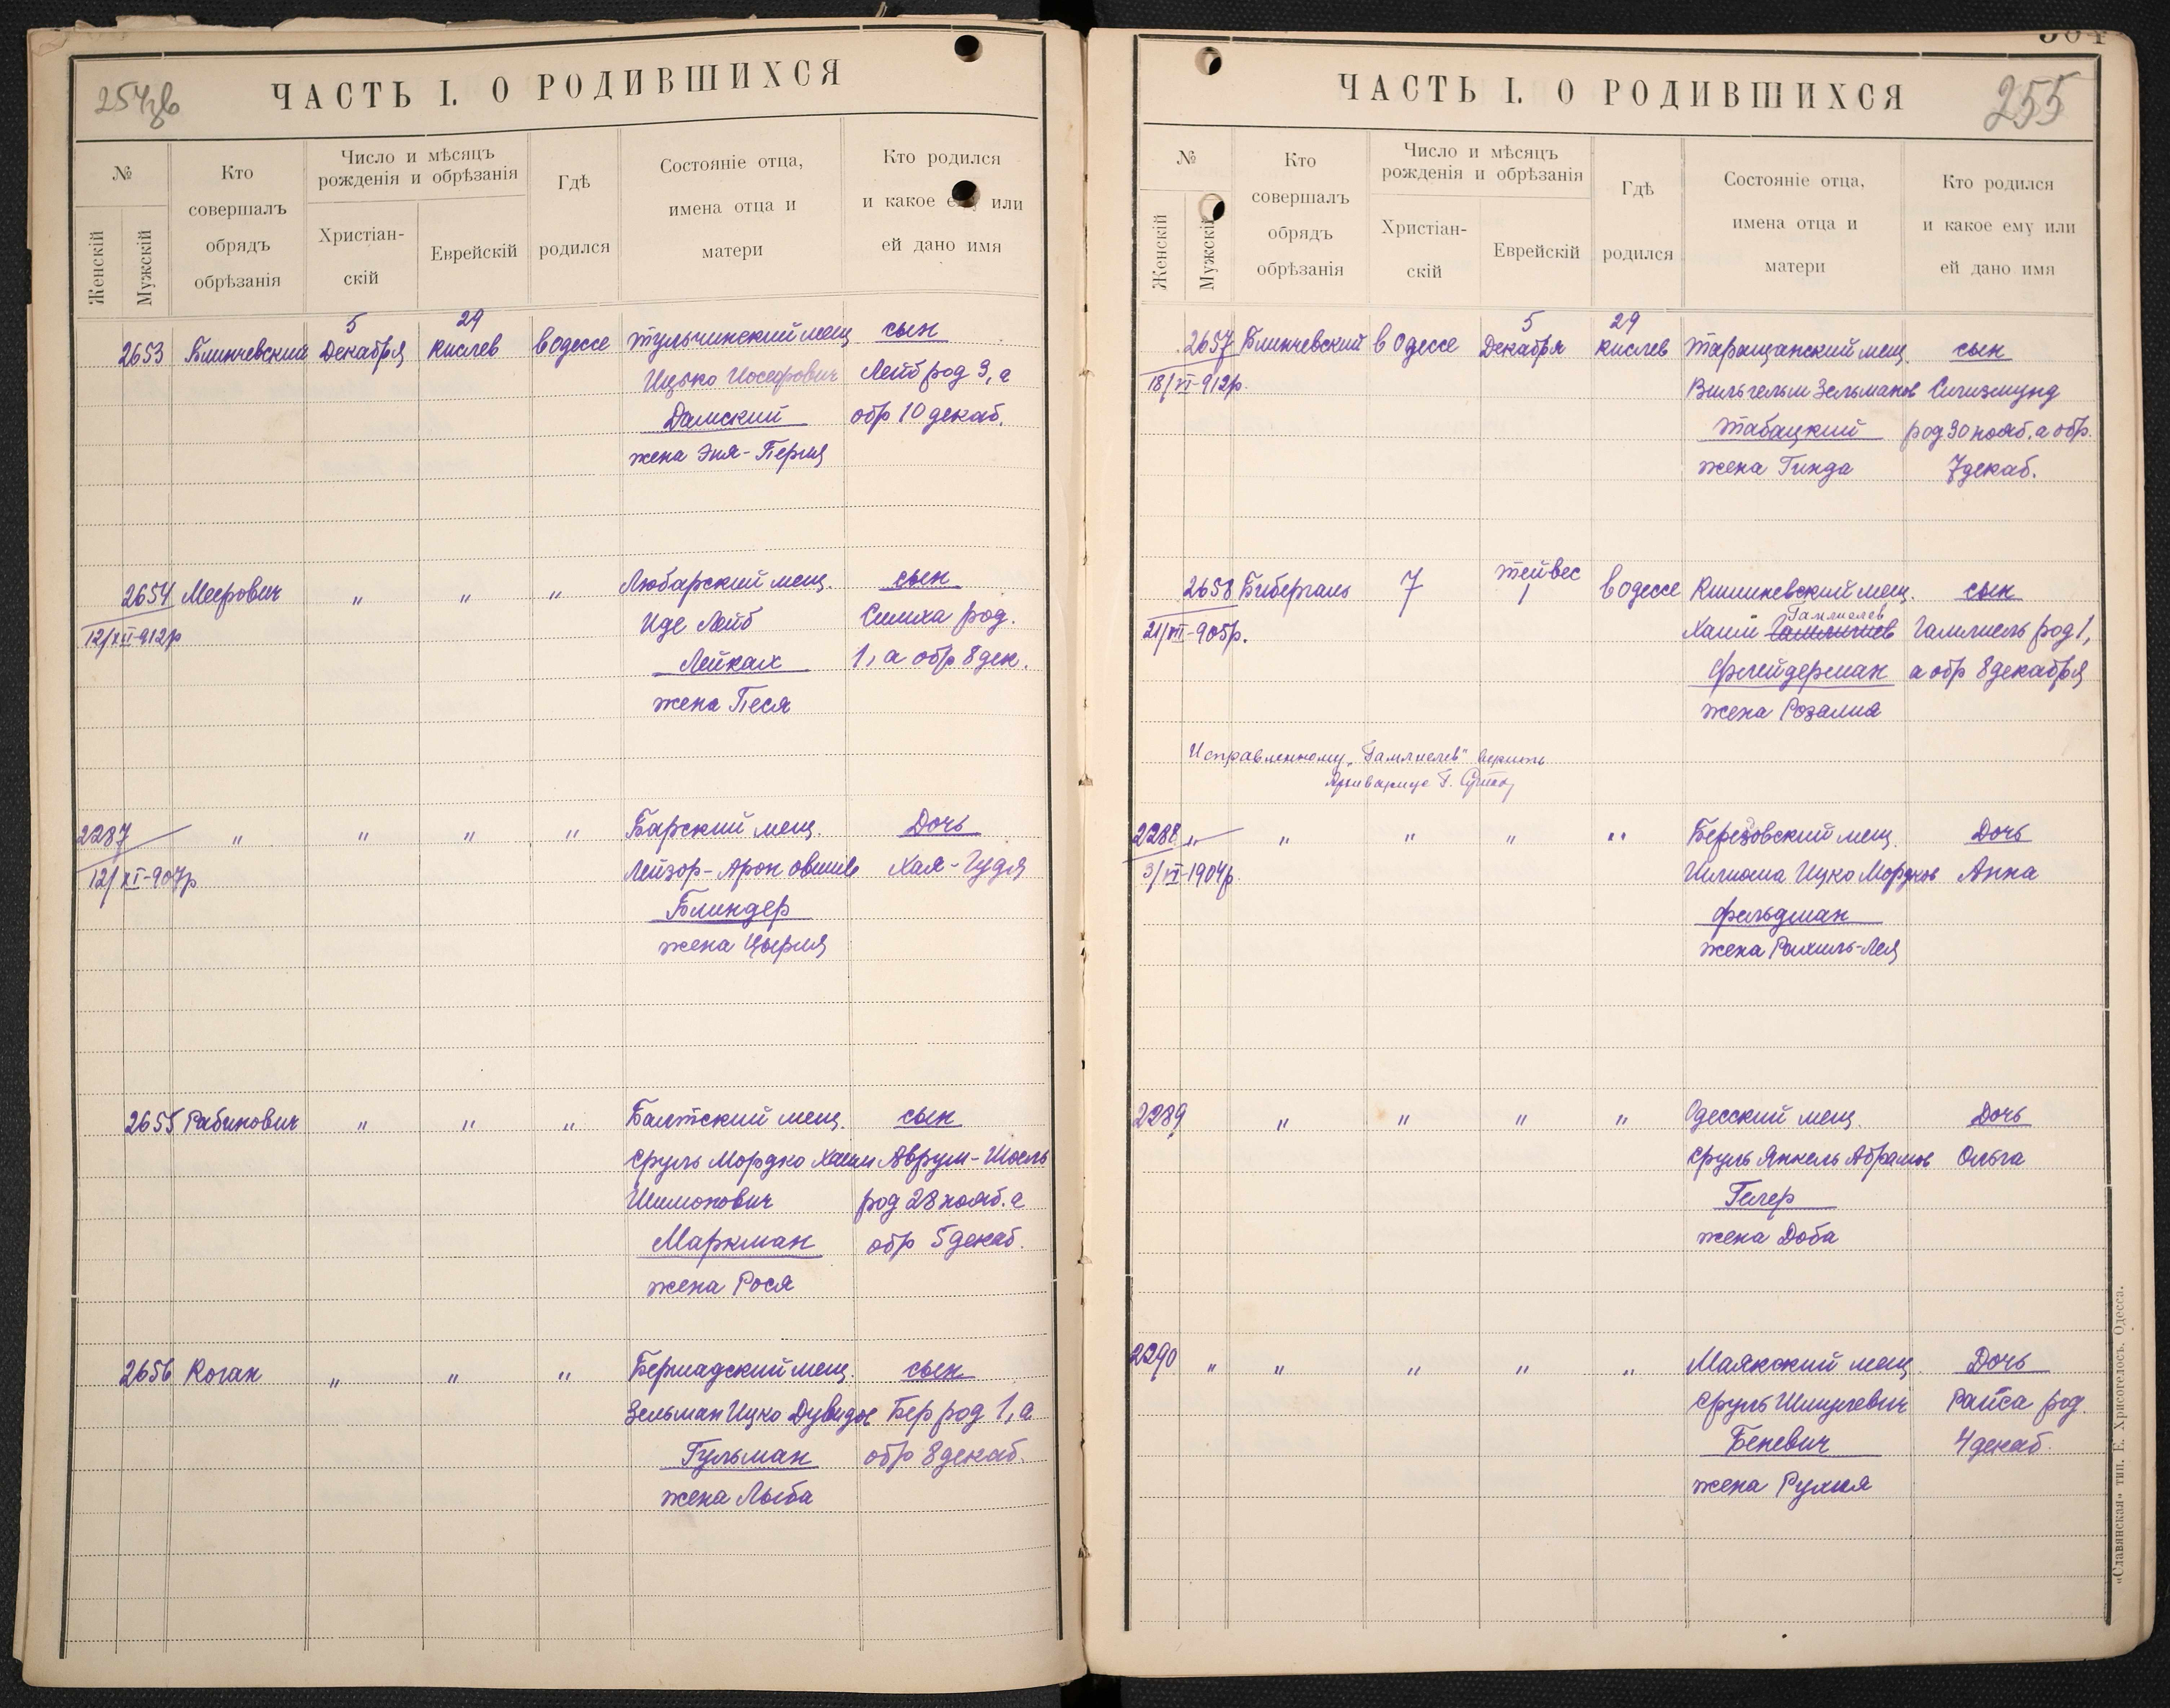 254зв
ЧАСТЬ I. О РОДИВШИХСЯ
№
Женскій
Мужскій
Кто совершалъ обрядъ обрѣзанія
Число и мѣсяцъ рожденія и обрѣзанія
Христіан-скій
Еврейскій
Гдѣ родился
Состояніе отца, имена отца и матери
Кто родился и какое ему или ей дано имя
5 29
2653 Блинчевский Декабря кислев в Одессе Тульчинский мещ сын
Ицько Иосифович Лейб род 3, а
Дамский обр 10 декаб.
жена Эня-Перля
2654 Меерович " " " Любарский мещ. сын
12/XII-912р Иде Лейб Симха род.
Лейках 1, а обр 8 дек.
жена Песя
2287 " " " " Барский мещ. Дочь
12/XI-907р Лейзор-Арон Овшиев Хая-Гудя
Блиндер
жена Цырля
2655 Рабинович " " " Балтский мещ. сын
Сруль Мордко Хаим Аврум-Шоель
Шимонович род 28 нояб. а
Маркман обр 5 декаб.
жена Рося
2656 Коган " " " Бершадский мещ. сын
Зельман Ицко Дувидов Бер род 1, а
Гульман обр 8 декаб.
жена Лыба
255
ЧАСТЬ I. О РОДИВШИХСЯ
№
Женскій
Мужскій
Кто совершалъ обрядъ обрѣзанія
Число и мѣсяцъ рожденія и обрѣзанія
Христіан-скій
Еврейскій
Гдѣ родился
Состояніе отца, имена отца и матери
Кто родился и какое ему или ей дано имя
5 29
2657 Блинчевский в Одессе Декабря кислев Таращанский мещ. сын
18/VI-912р. Вильгельм Зельманов Сигизмунд
Табацкий род 30 нояб. а обр.
жена Гинда 7 декаб.
2658 Бибергаль 7 тейвес 1 в Одессе Кишиневский мещ. сын
Гамлиелев
21/XII-905р. Хаим Гамлиель род 1,
Флейдерман а обр 8 декабря
жена Розалия
Исправленному „Гамлиелев" верить
2288 " " " " " Березовский мещ. Дочь
3/VI-1904р. Шлиома Ицко Мордков Анна
Фельдман
жена Рахиль-Лея
2289 " " " " Одесский мещ. Дочь
Сруль Янкель Абрамов Ольга
Гелер
жена Доба
2290 " " " " " Маякский мещ. Дочь
Сруль Шмулевич Раиса род.
Беневич 4 декаб.
жена Рухля
«Славянская» тип. Е. Хрисогелосъ. Одесса.